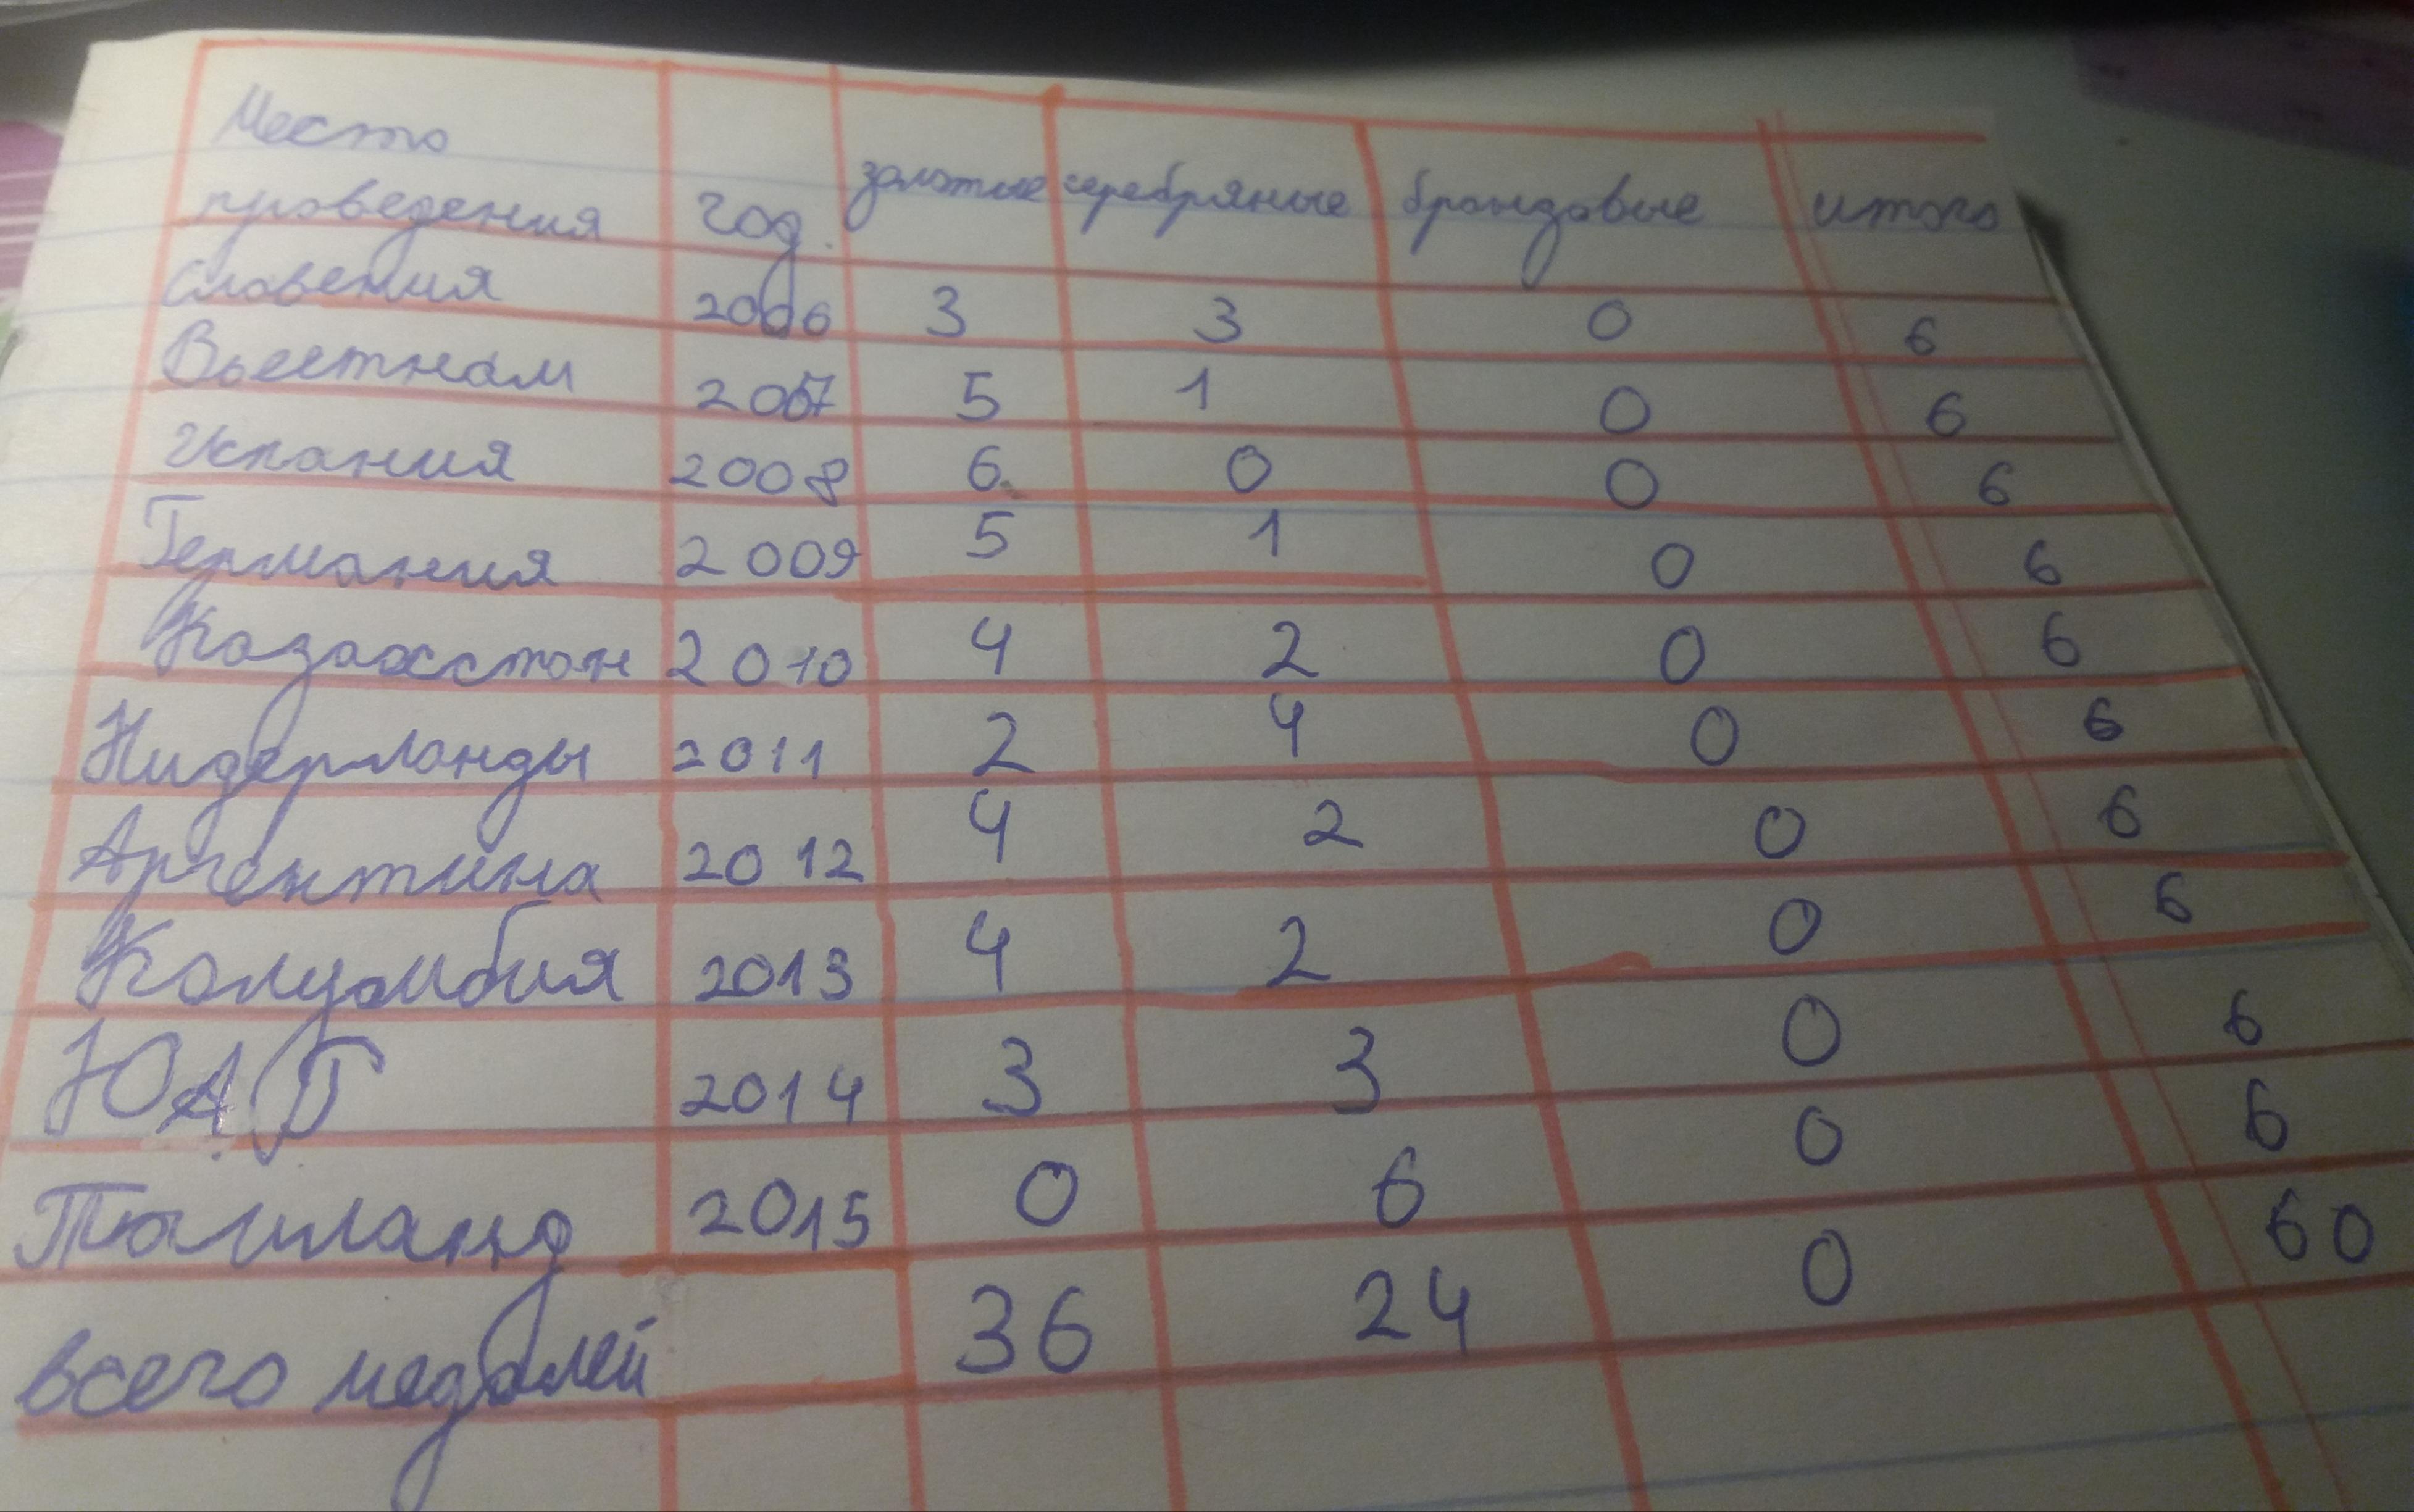 Место
проведения год. золотые серебряные бронзовые итого
Словения 2006 3 3 0 6
Вьестнам 2007 5 1 0 6
Испания 2008 6 0 0 6
Германия 2009 5 1 0 6
Казахстан 2010 4 2 0 6
Нидерланды 2011 2 4 0 6
Аргентина 2012 4 2 0 6
Колумбия 2013 4 2 0 6
ЮАР 2014 3 3 0 6
Таиланд 2015 0 6 0 6
всего медалей 36 24 0 60